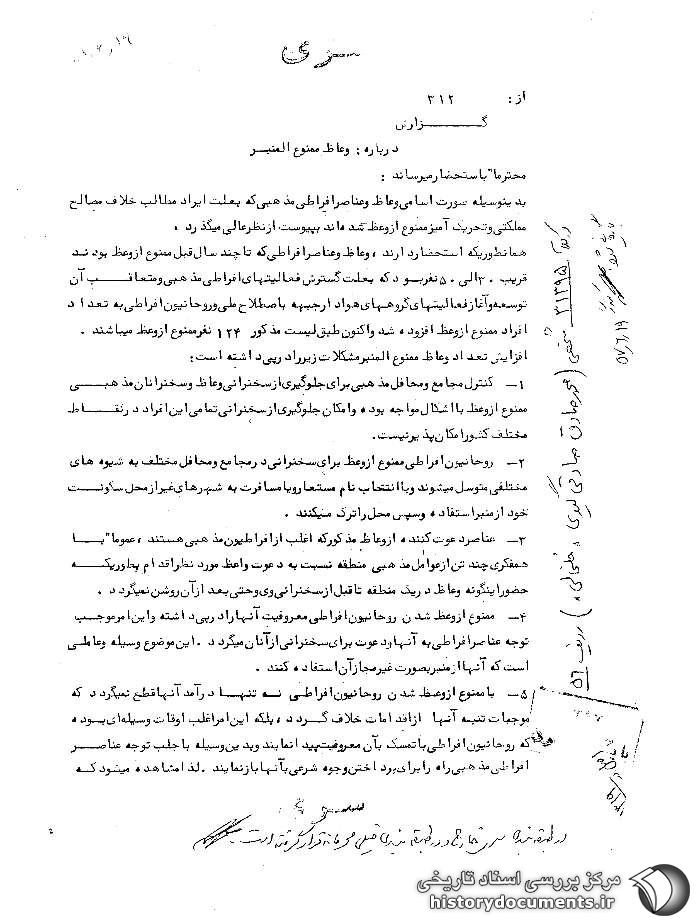 سری
از : ۳۱۲
گـــــزارش
درباره : وعاظ ممنوع المنبـر
محترما" باستحضار میرساند :
بدینوسیله صورت اسامی وعاظ وعناصر افراطی مذهبی که بعلت ایراد مطالب خلاف مصالح
مملکتی وتحریک آمیز ممنوع از وعظ شده اند بپیوست از نظر عالی میگذرد .
همانطوریکه استحضار دارند ، وعاظ وعناصر افراطی که تا چند سال قبل ممنوع از وعظ بودند
قریب ۳۰ الی ۵۰ نفر بود که بعلت گسترش فعالیتهای افراطی مذهبی ومتعاقـب آن
توسعه وآغاز فعالیتهای گروههای هوادار جبهه باصطلاح ملی وروحانیون افراطی به تعداد
افراد ممنوع از وعظ افزوده شد واکنون طبق لیست مذکور ۱۲۴ نفر ممنوع از وعظ میباشند .
افزایش تعداد وعاظ ممنوع المنبر مشکلات زیر را در پی داشته است :
۱ــ کنترل مجامع ومحافل مذهبی برای جلوگیری از سخنرانی وعاظ وسخنرانان مذهبـی
ممنوع از وعظ با اشکال مواجه بوده وامکان جلوگیری از سخنرانی تمامی این افراد در نقـاط
مختلف کشور امکان پذیر نیست.
۲ــ روحانیون افراطی ممنوع از وعظ برای سخنرانی در مجامع ومحافل مختلف به شیوه های
مختلفی متوسل میشوند وبا انتخاب نام مستعار ویا مسافرت به شهرهای غیر از محل سکونـت
خود از منبر استفاده وسپس محل را ترک میکنند .
۳ــ عناصر دعوت کننده از وعاظ مذکور که اغلب از افراطیون مذهبی هستند ، عموما" بــا
همفکری چند تن از عوامل مذهبی منطقه نسبت به دعوت واعظ مورد نظر اقدام بطوریکـه
حضور اینگونه وعاظ در یک منطقه تا قبل از سخنرانی وی وحتی بعد از آن روشن نمیگردد .
۴ــ ممنوع از وعظ شدن روحانیون افراطی معروفیت آنها را در پی داشته واین امر موجـب
توجه عناصر افراطی به آنها ودعوت برای سخنرانی از آنان میگردد . این موضوع وسیله وعاملی
است که آنها از منبر بصورت غیر مجاز آن استفاده کنند .
۵ــ با ممنوع از وعظ شدن روحانیون افراطی نـه تنهـا درآمد آنها قطع نمیگردد که
موجبات تنبیه آنها از اقدامات خلاف گـردد ، بلکه این امر اغلب اوقات وسیله ای بوده
که روحانیون افراطی با تمسک بآن معروفیت پیدا نمایند وبدین وسیله با جلب توجه عناصـر
افراطی مذهبی راه را برای پرداختن وجوه شرعی بآنها باز نمایند . لذا مشاهده میشود کـه
سری
در طبقه بندی سری خارج و در طبقه بندی خیلی محرمانه قرار گرفته است.
۳۱۳۹۵ شخصی (محمد صادق صادقی گیوی، خلخالی) ردیف ۵۶
۵۷/۶/۱۹
مرکز بررسی اسناد تاریخی
historydocuments.ir